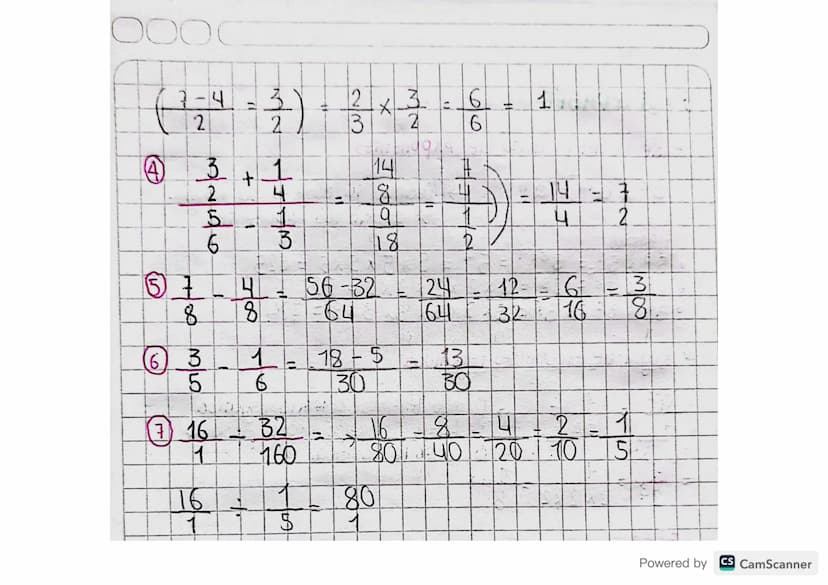 ( (7-4)/2 = 3/2 ) = 2/3 × 3/2 = 6/6 = 1
④ (3/2 + 1/4)/(5/6 - 1/3) = (14/8)/(9/18) = (7/4)/(1/2) = 14/4 = 7/2
⑤ 7/8 - 4/8 = (56-32)/64 = 24/64 = 12/32 = 6/16 = 3/8
⑥ 3/5 - 1/6 = (18-5)/30 = 13/30
⑦ 16/1 ÷ 32/160 = → 16/80 = 8/40 = 4/20 = 2/10 = 1/5
16/1 ÷ 1/5 = 80/1
Powered by CS CamScanner